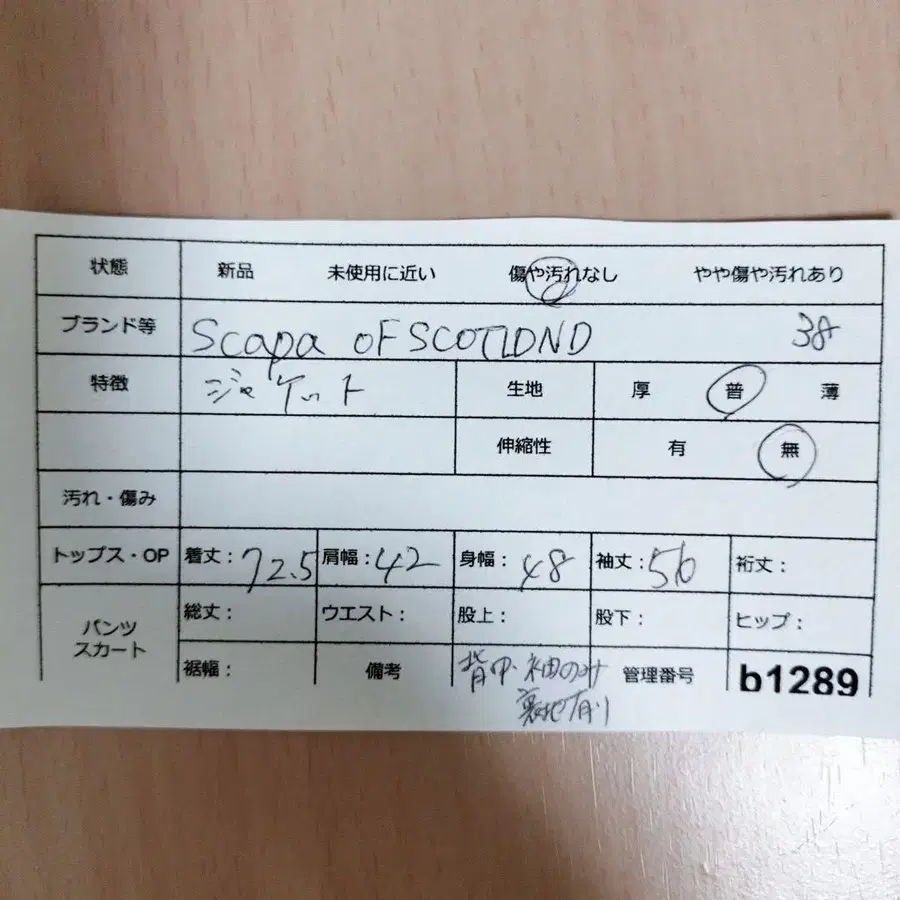 状態 新品 未使用に近い 傷や汚れなし やや傷や汚れあり
ブランド等 Scapa OF SCOTLDND 38
特徴 ジャケット 生地 厚 普 薄
伸縮性 有 無
汚れ・傷み
トップス・OP 着丈：72.5 肩幅：42 身幅：48 袖丈：56 裄丈：
パンツ スカート 総丈： ウエスト： 股上： 股下： ヒップ：
裾幅： 備考 背中・袖のみ 管理番号 b1289
裏地有り